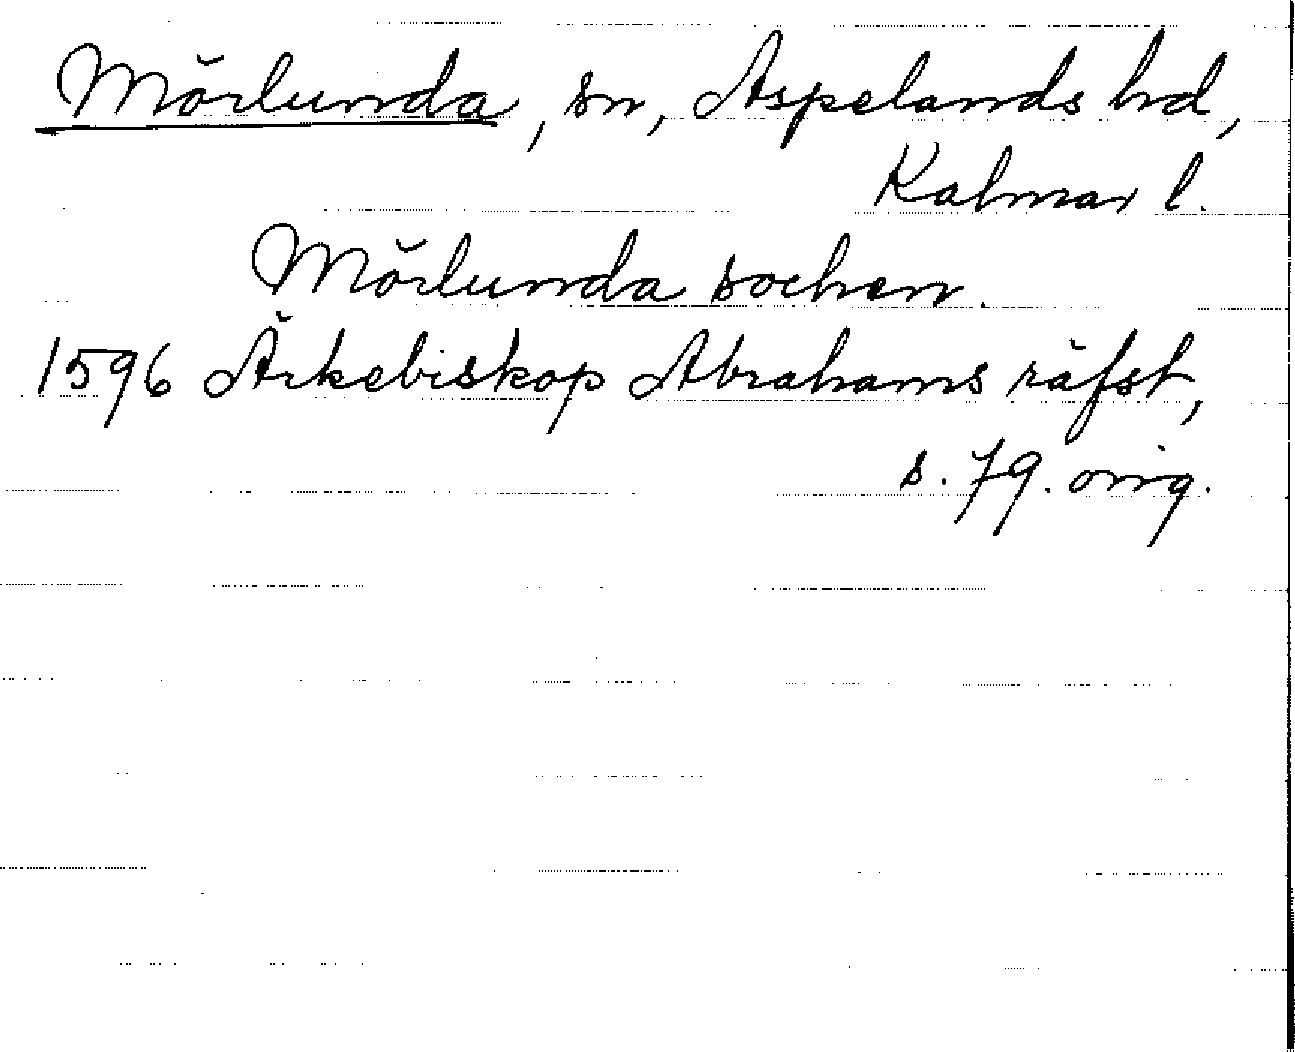 Mörlunda, sn, Aspelands hd,
Kalmar l.
Mörlunda sochen.
1596 Ärkebiskop Abrahams räfst,
s. 79. orig.